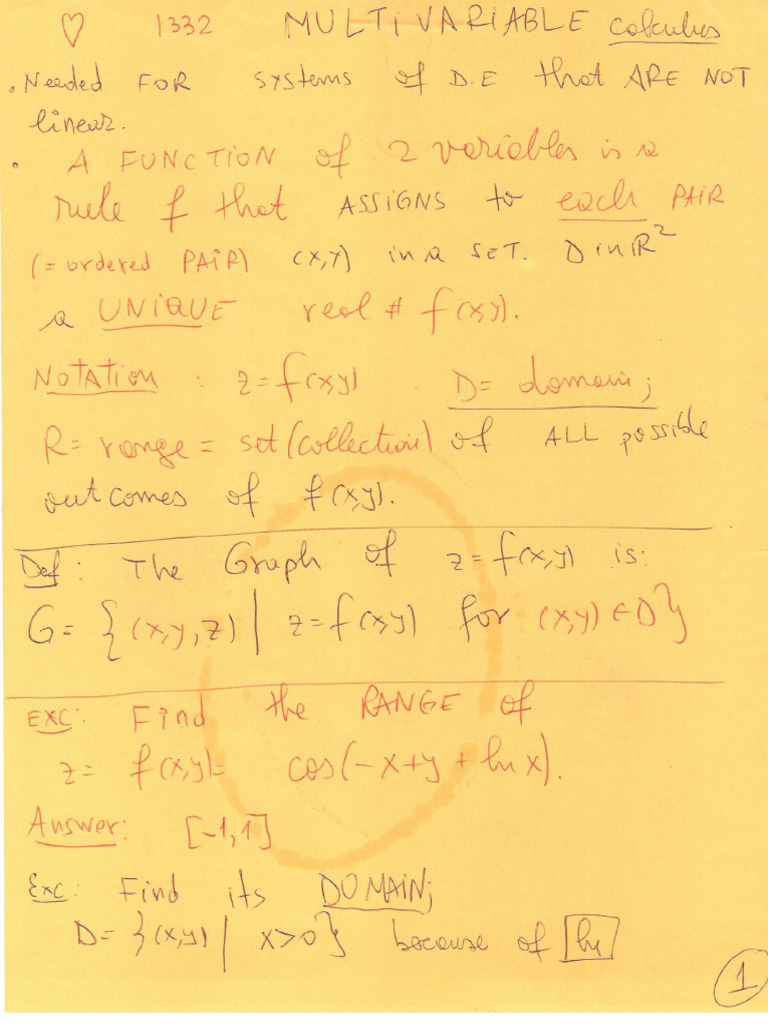 ♡ 1332 MULTIVARIABLE calculus
• Needed FOR systems of D.E that ARE NOT
linear.
• A FUNCTION of 2 variables is a
rule f that ASSIGNS to each PAIR
(= ordered PAIR) (x,y) in a SET. D in ℝ²
a UNIQUE real # f(x,y).
NOTATION : z=f(x,y) D= domain;
R= range = set (collection) of ALL possible
outcomes of f(x,y).
Def: The Graph of z=f(x,y) is:
G= {(x,y,z) | z=f(x,y) for (x,y) ∈ D}
EXC: Find the RANGE of
z= f(x,y)= cos(-x+y + ln x).
Answer: [-1,1]
Exc: Find its DOMAIN;
D= {(x,y) | x>0} because of ln
1